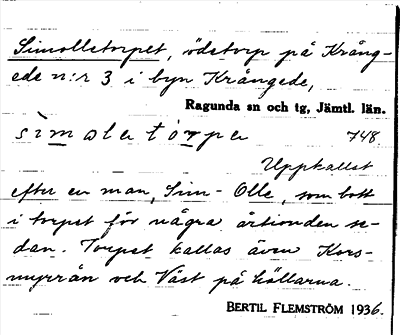 Simolletorpet, ödetorp på Krång-
ede n:r 3 i byn Krångede,
Ragunda sn och tg, Jämtl. län.
sìmoletòrpe 748
Uppkallat
efter en man, Sim-Olle, som bott
i torpet för några årtionden se-
dan. Torpet kallas även Kors-
myrrån och Väst på hällarna.
BERTIL FLEMSTRÖM 1936.